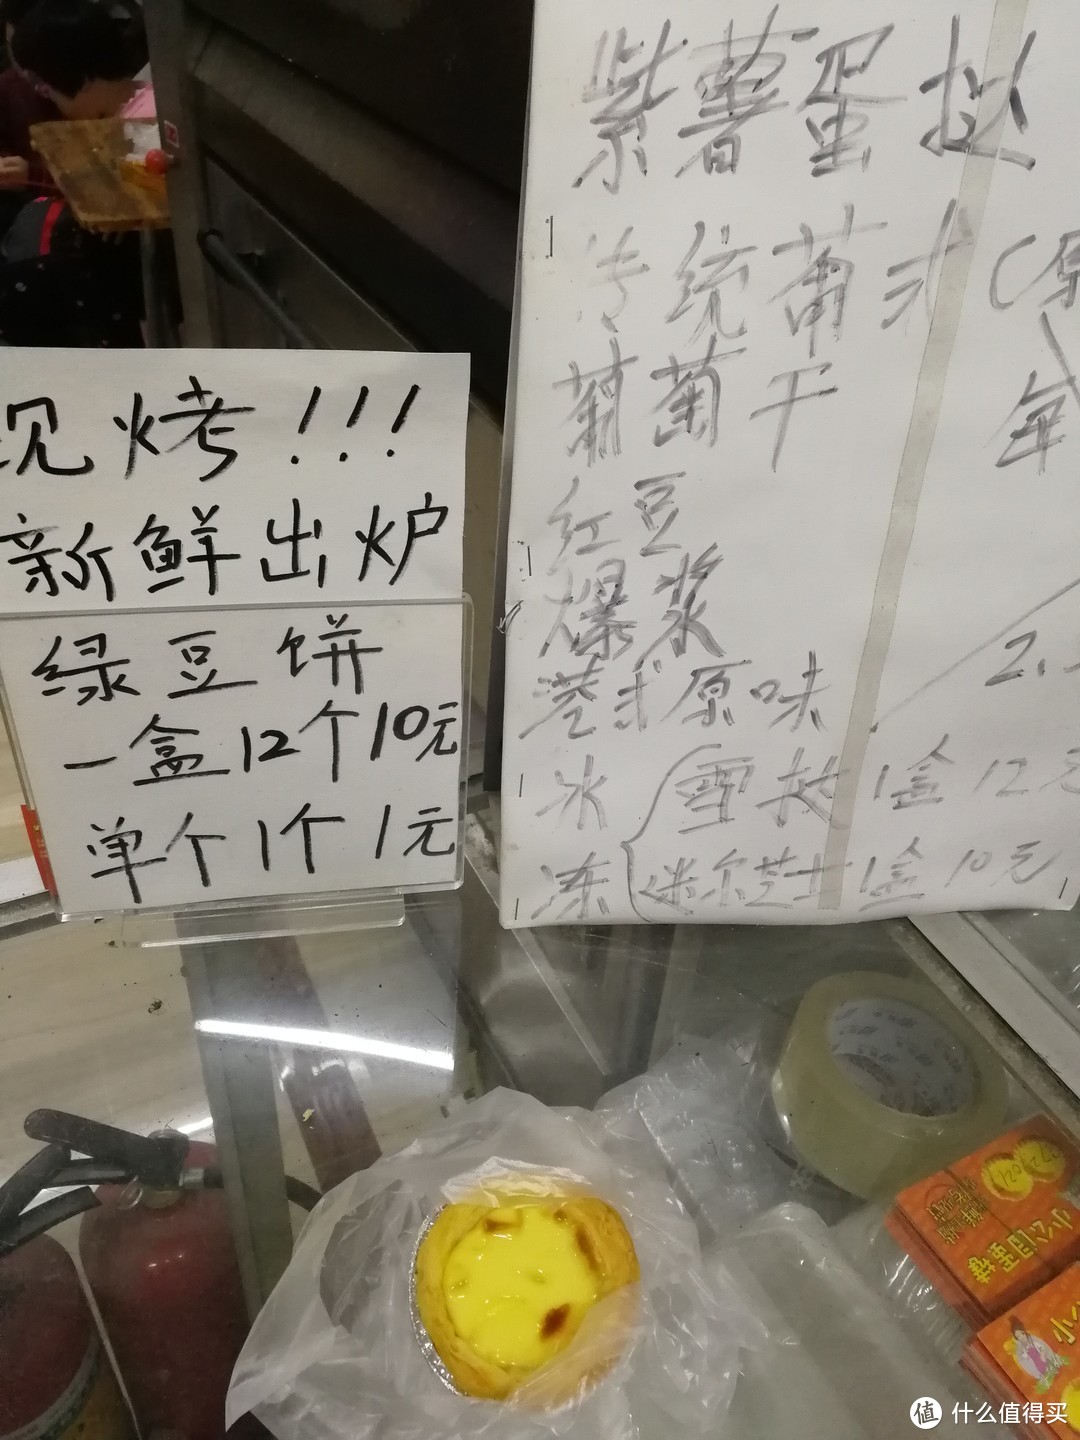 现烤!!!
新鲜出炉
绿豆饼
一盒12个10元
单个1个1元
紫薯蛋挞
传统葡式(原
葡萄干
红豆
每
爆浆
港式原味
2.
冰 雪挞1盒12元
冻 迷尔芝士1盒10元
小公园蛋撻
小
值 什么值得买